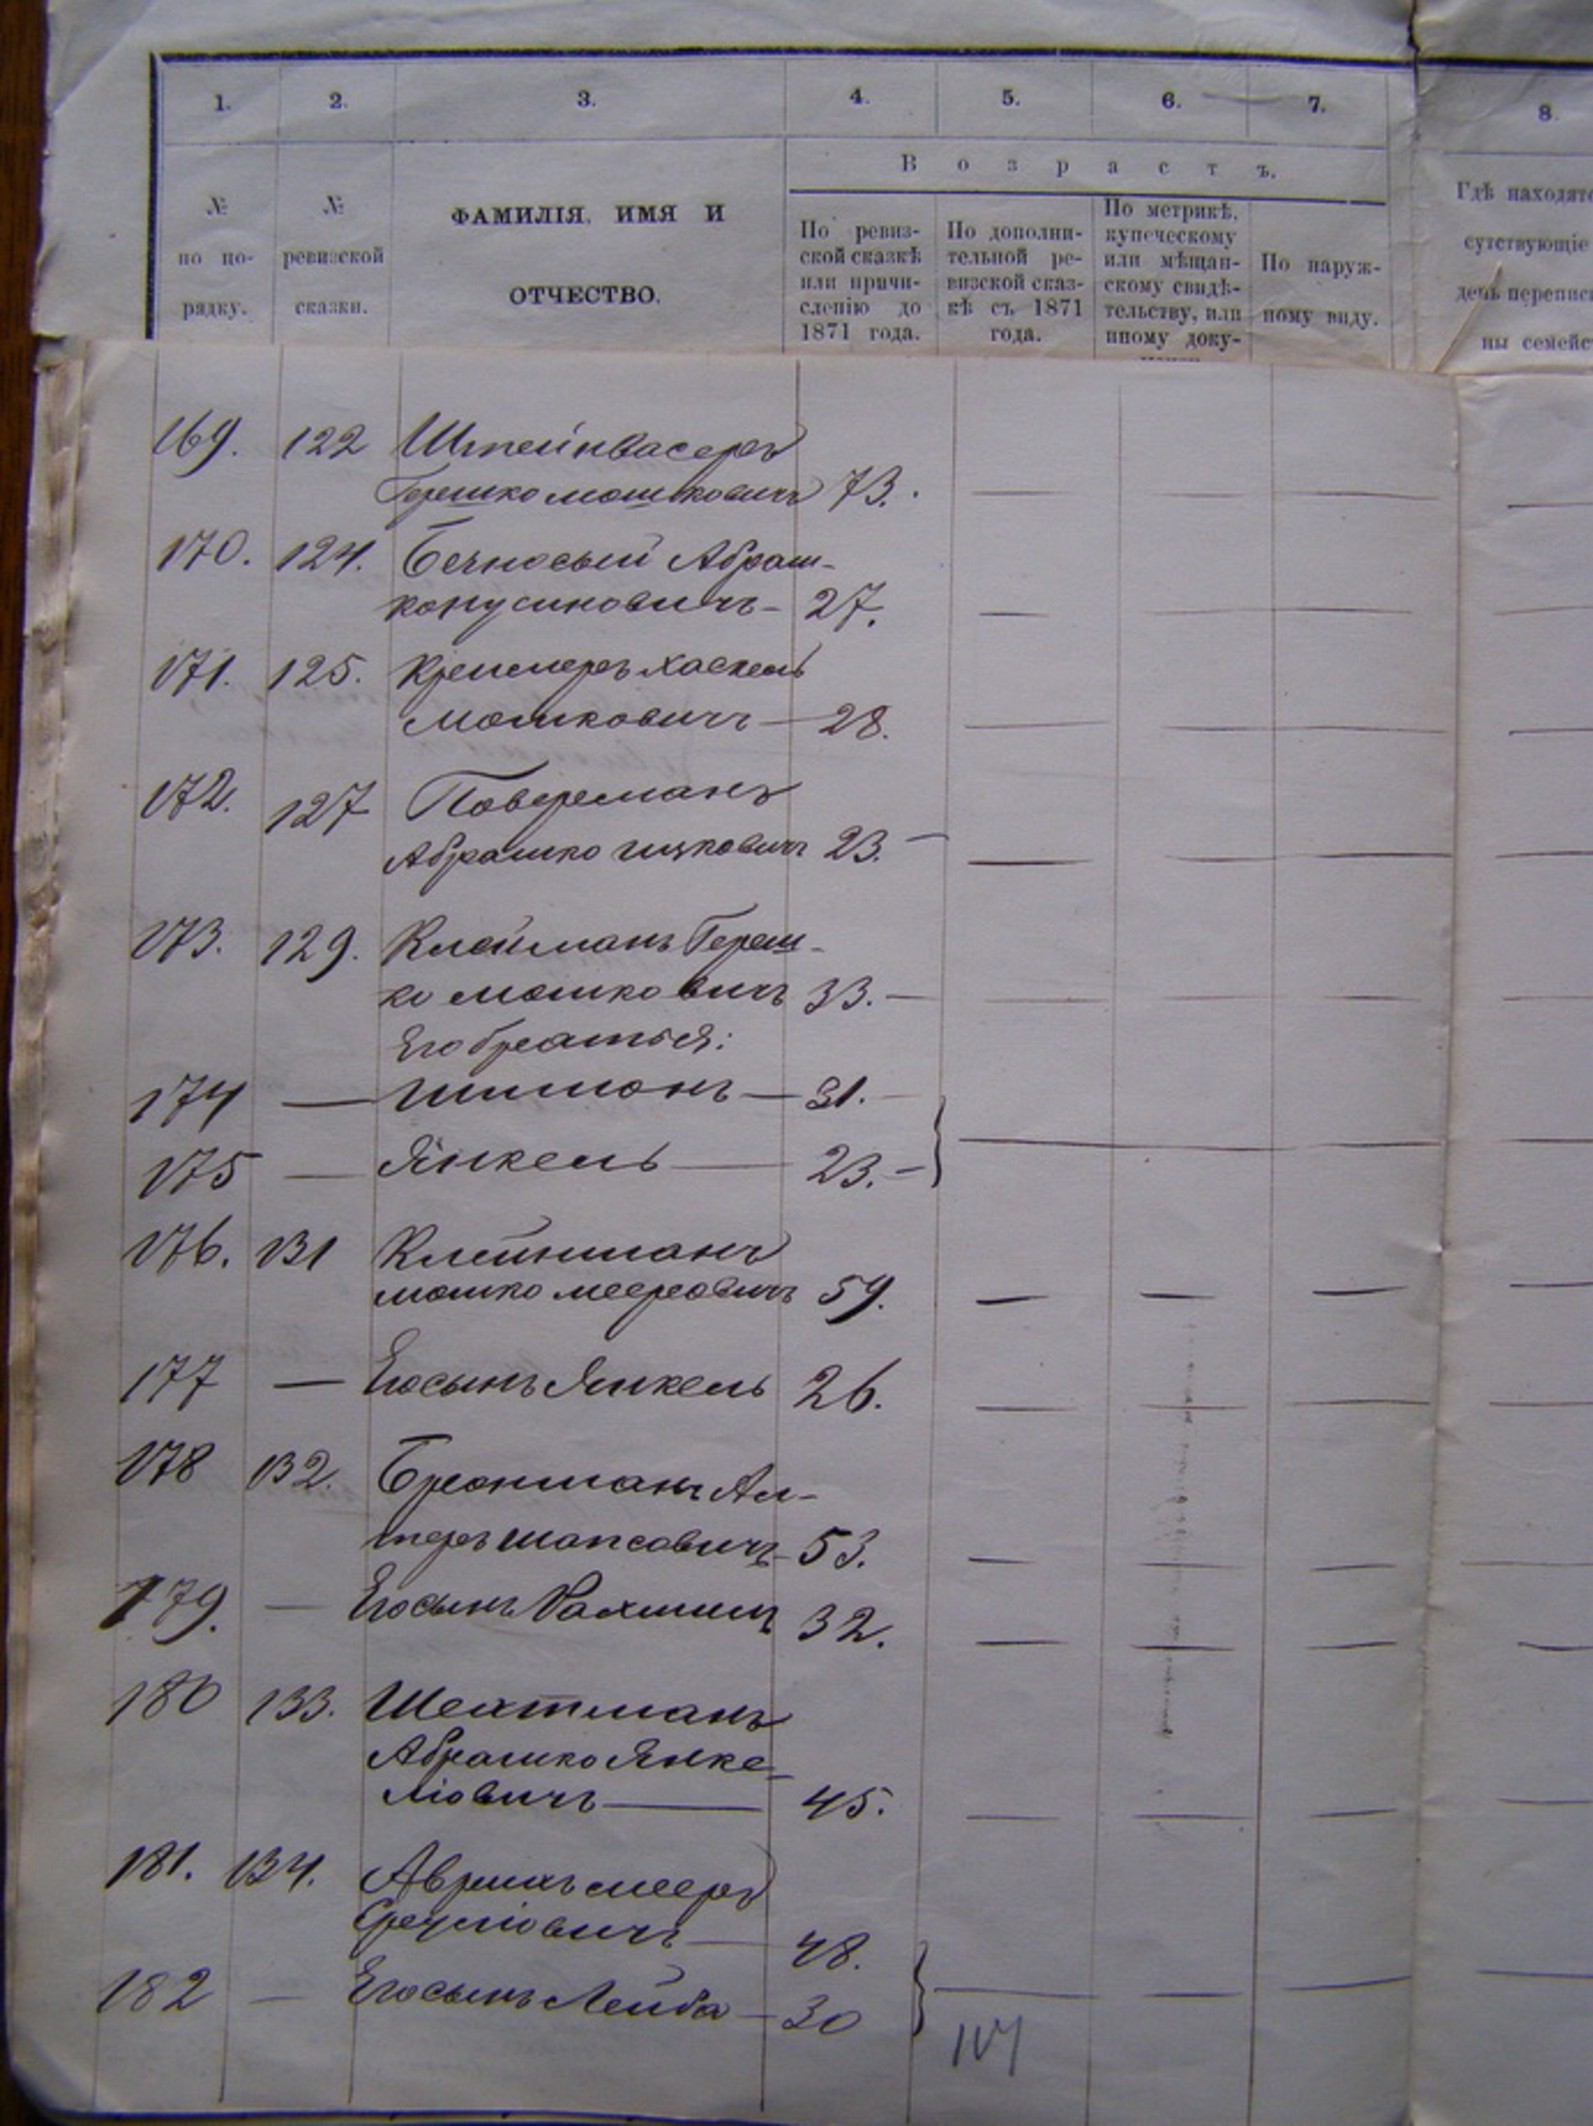 1. 2. 3. 4. 5. 6. 7. 8.
№ по по-рядку.
№ ревизской сказки.
ФАМИЛІЯ, ИМЯ И
ОТЧЕСТВО.
Возрастъ.
По ревиз-
ской сказкѣ
или причи-
сленію до
1871 года.
По дополни-
тельной ре-
визской сказ-
кѣ съ 1871
года.
По метрикѣ,
купеческому
или мѣщан-
скому свидѣ-
тельству, или
иному доку-
По наруж-
ному виду.
Гдѣ находятс
сутствующіе
день переписи
ны семейс
169. 122 Штейнвасеръ
Гершко Мошковичъ 73.
170. 124. Безносый Абраш-
ко Нусиновичъ - 27.
171. 125. Кремеръ Хаскель
Мошковичъ — 28.
172. 127 Поберманъ
Абрашко Ицковичъ 23. —
173. 129. Клейманъ Герш-
ко Мошковичъ 33. —
Его братья:
174 — Шимонъ — 31. —
175 — Янкель — 23. —
176. 131 Клейнманъ
Мошко Мееровичъ 59.
177 — Его сынъ Янкель 26.
178 132. Бронманъ Ал-
теръ Шапсовичъ - 53.
179. — Его сынъ Рахмиль 32.
180 133. Шехтманъ
Абрашко Янке-
ліовичъ — 45.
181. 134. Аврухъ Мееръ
Сруліовичъ — 48.
182 — Его сынъ Лейба — 30